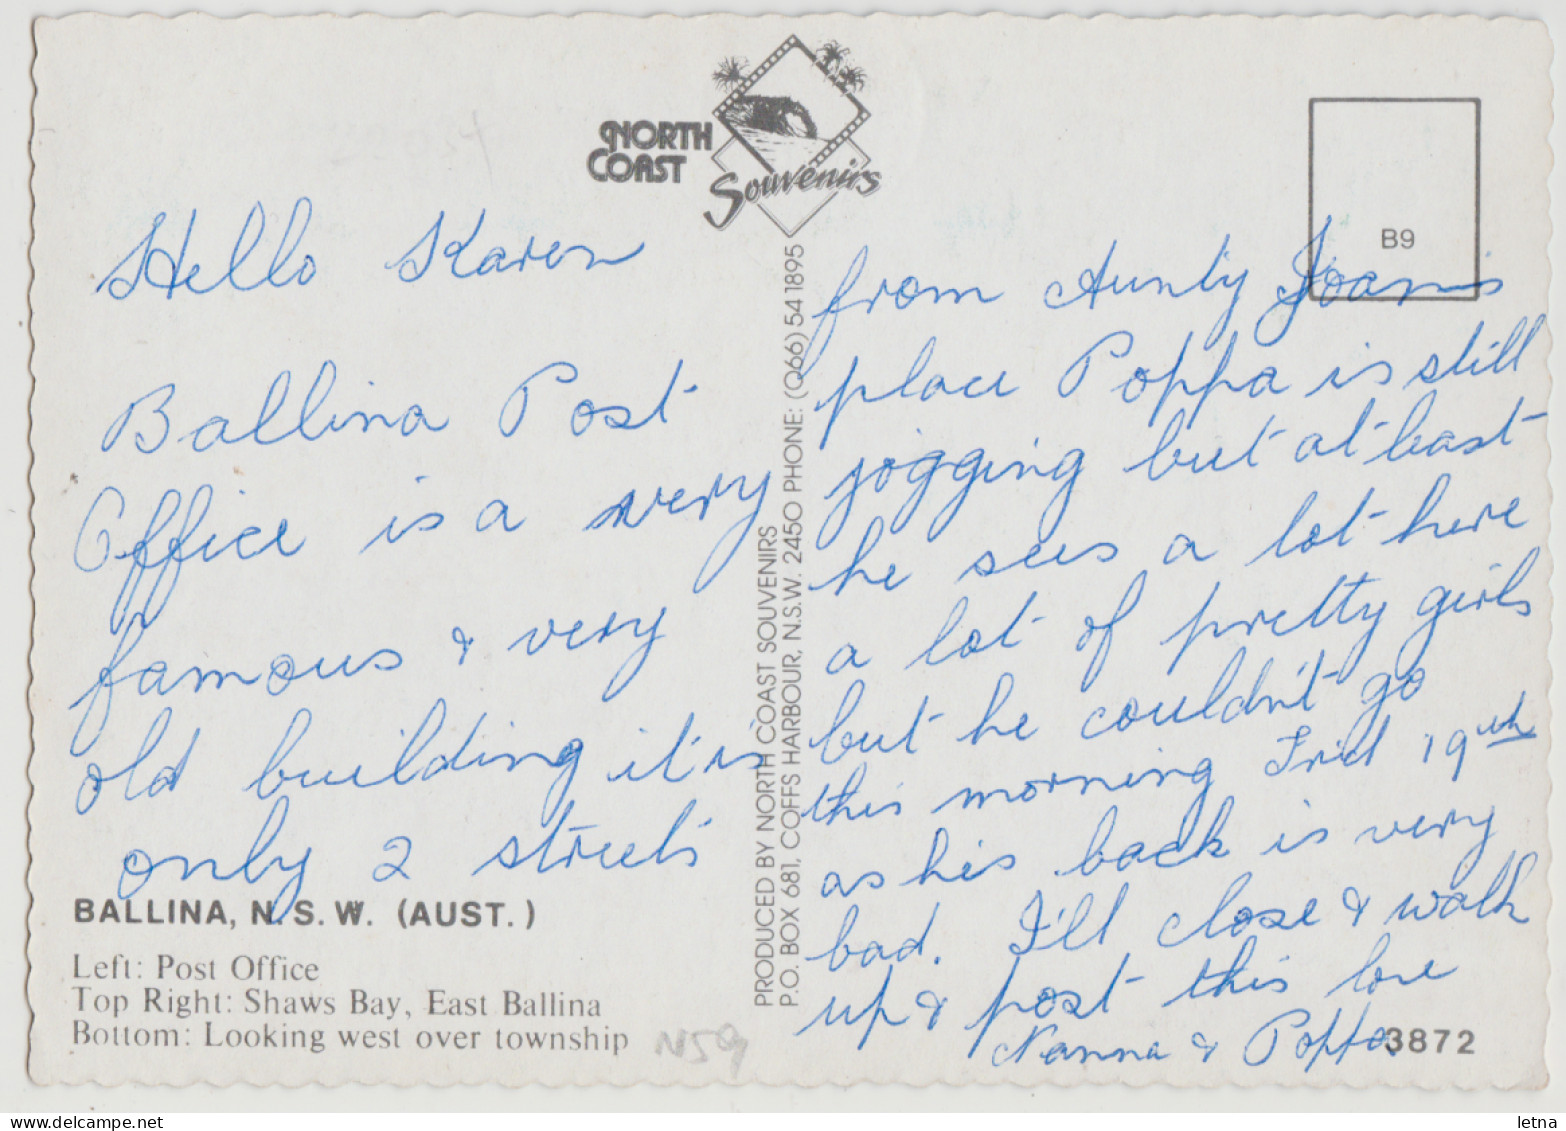 NORTH
COAST
Souvenirs
B9
Hello Karen
Ballina Post
Office is a very
famous & very
old building it is
only 2 streets
from Aunty Joan's
place Poppa is still
jogging but at least
he sees a lot here
a lot of pretty girls
but he couldn't go
this morning Frid 19th
as his back is very
bad. I'll close & walk
up & post this love
Nanna & Poppa
BALLINA, N.S.W. (AUST.)
Left: Post Office
Top Right: Shaws Bay, East Ballina
Bottom: Looking west over township
N59
3872
PRODUCED BY NORTH COAST SOUVENIRS
P.O. BOX 681, COFFS HARBOUR, N.S.W. 2450 PHONE: (066) 54 1895
letna